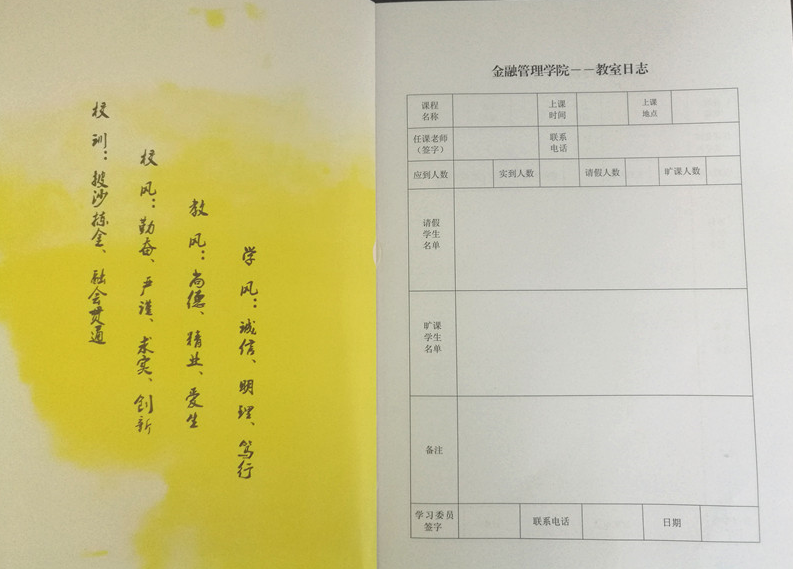 校训：披沙拣金、融会贯通
校风：勤奋、严谨、求实、创新
教风：尚德、精业、爱生
学风：诚信、明理、笃行
金融管理学院——教室日志
课程名称 上课时间 上课地点
任课老师（签字） 联系电话
应到人数 实到人数 请假人数 旷课人数
请假学生名单
旷课学生名单
备注
学习委员签字 联系电话 日期